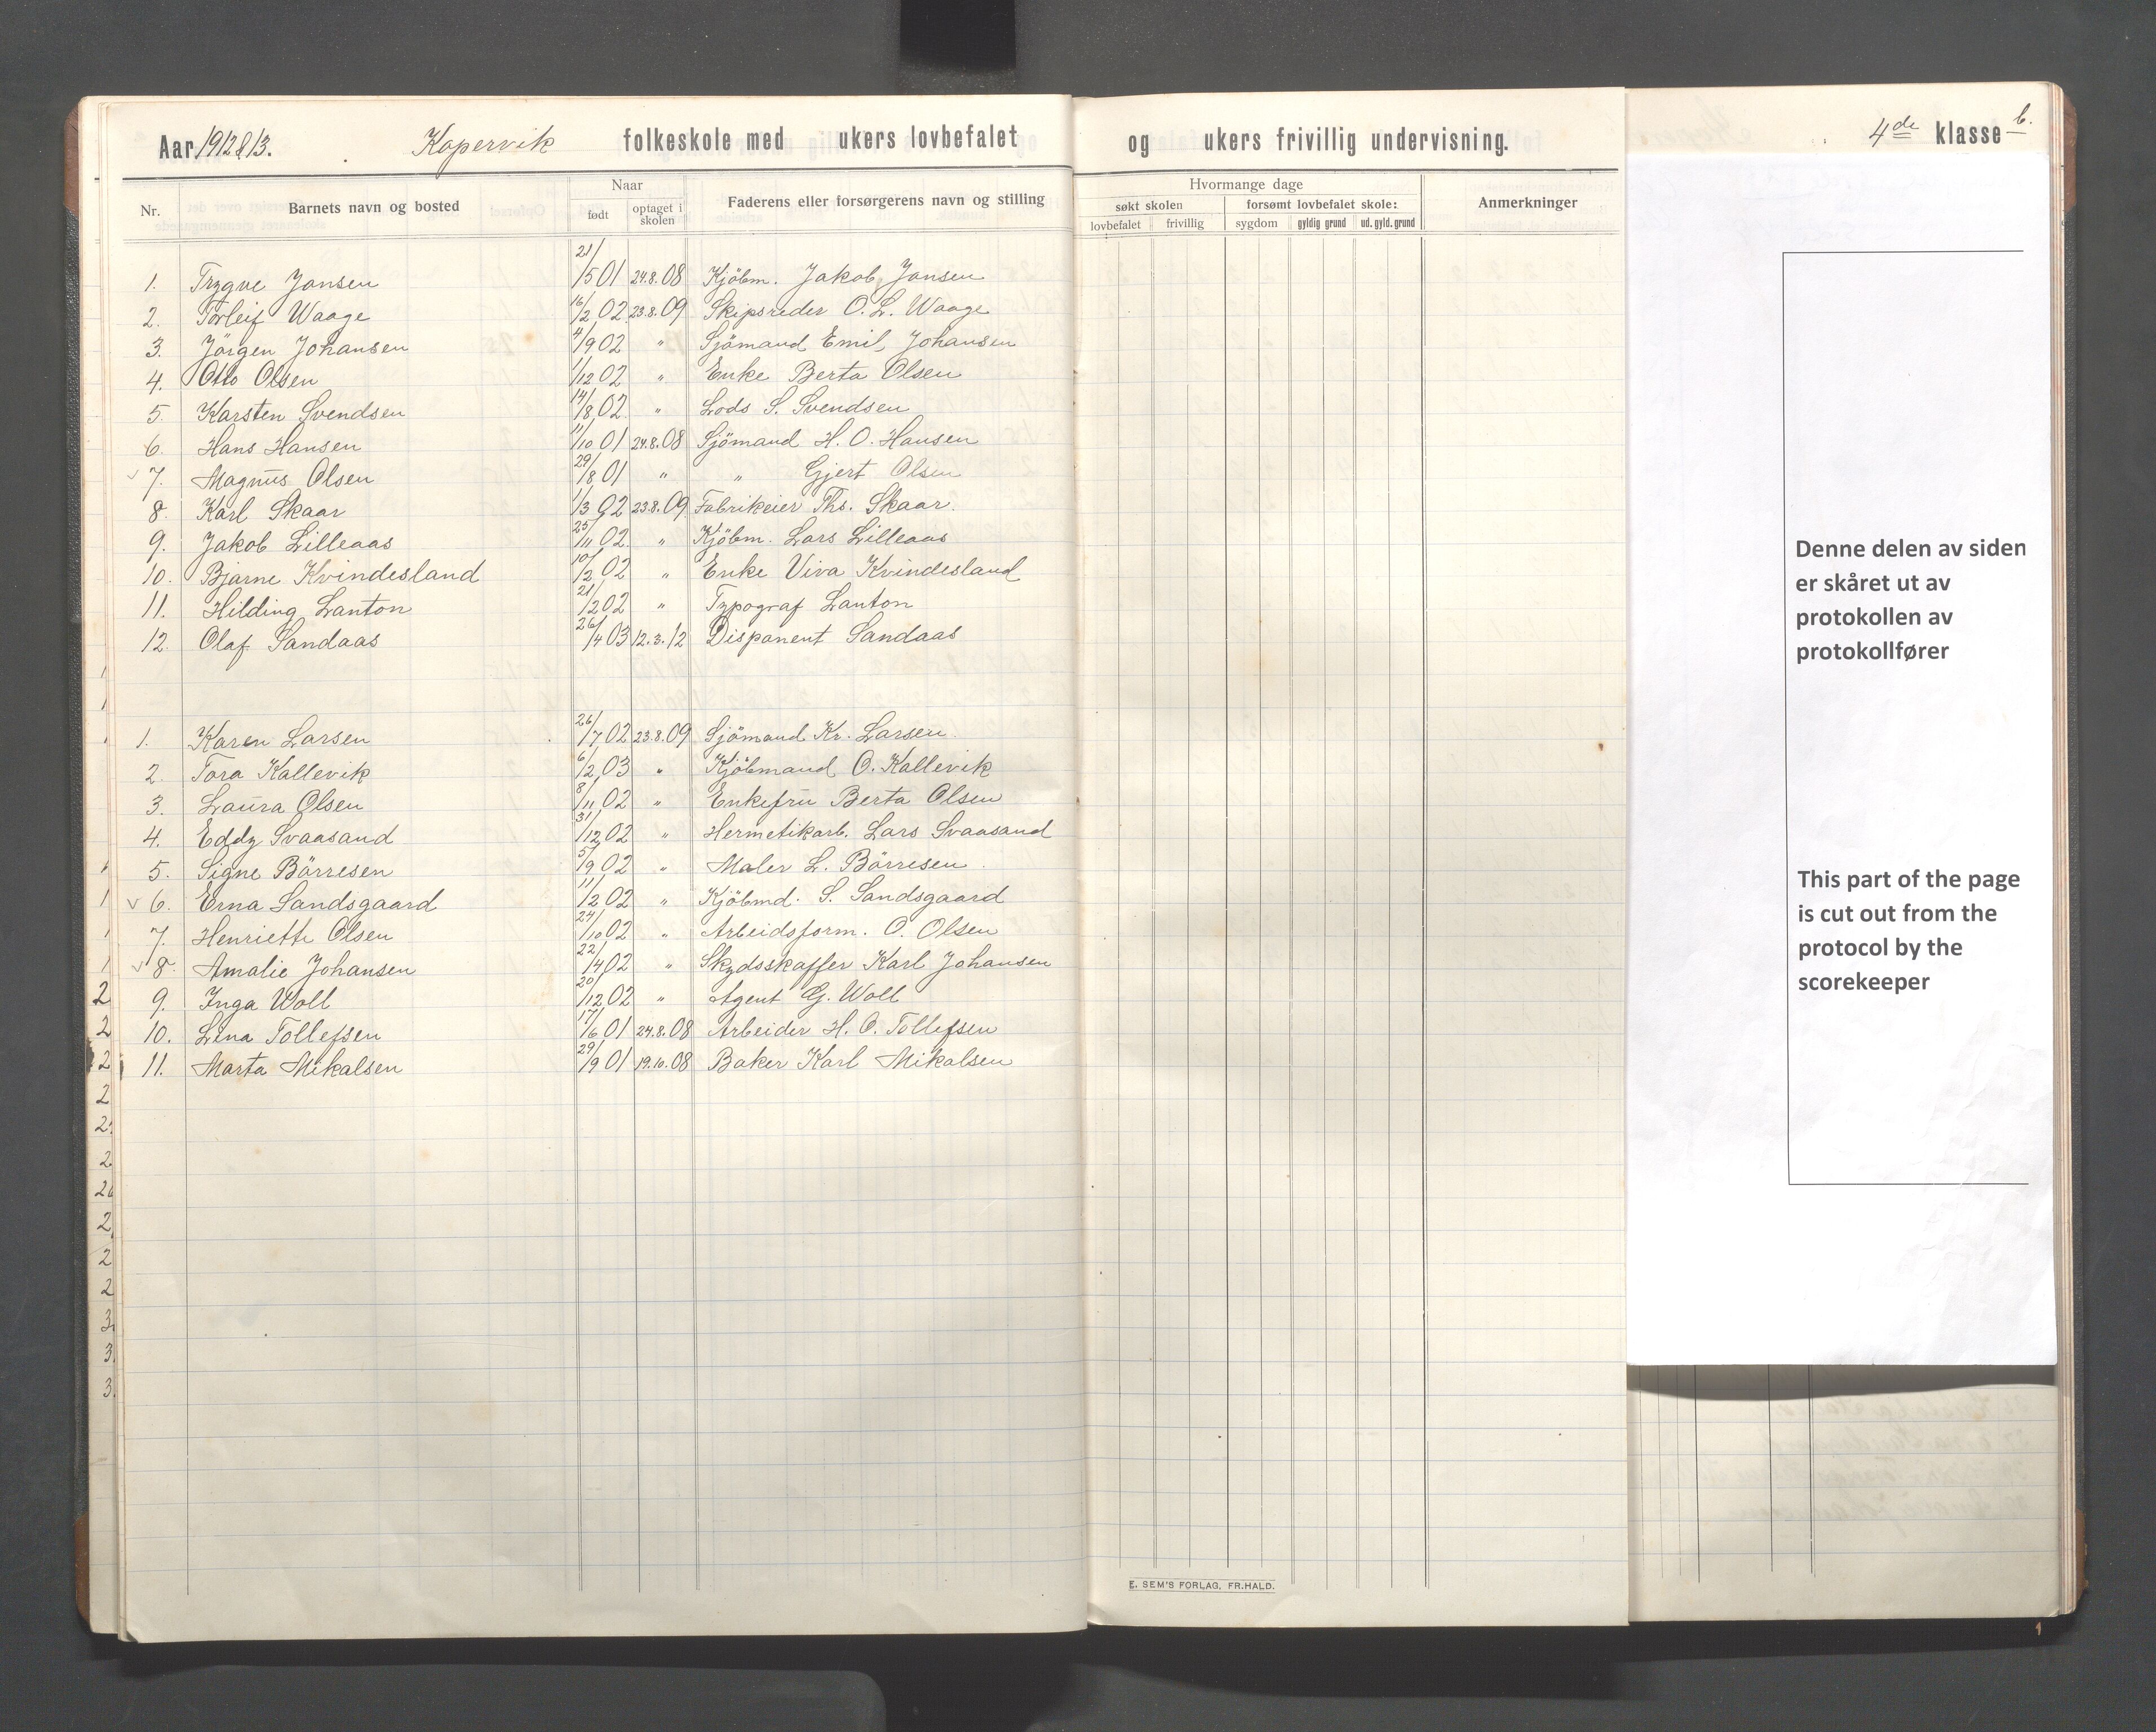 Aar 1912/13. Kopervik folkeskole med ukers lovbefalet og ukers frivillig undervisning. 4de klasse b.
Nr. Barnets navn og bosted Naar født optaget i skolen Faderens eller forsørgerens navn og stilling Hvormange dage søkt skolen lovbefalet frivillig forsømt lovbefalet skole: sygdom gyldig grund ud. gyld. grund Anmerkninger
1. Trygve Jansen 21/5 01 24.8.08 Kjöbm. Jakob Jansen
2. Torleif Waage 16/2 02 23.8.09 Skipsreder O. L. Waage
3. Jörgen Johansen 4/9 02 " Sjömand Emil Johansen
4. Otto Olsen 1/12 02 " Enke Berta Olsen
5. Karsten Svendsen 14/8 02 " Lods S. Svendsen
6. Hans Hansen 11/10 01 24.8.08 Sjömand H. O. Hansen
7. Magnus Olsen 29/8 01 " " Gjert Olsen
8. Karl Skaar 1/3 02 23.8.09 Fabrikeier Ths. Skaar.
9. Jakob Lilleaas 25/11 02 " Kjöbm. Lars Lilleaas
10. Bjarne Kvindesland 10/2 02 " Enke Viva Kvindesland
11. Hilding Lanton 21/2 02 " Typograf Lanton
12. Olaf Sandaas 26/4 03 12.3.12 Disponent Sandaas
1. Karen Larsen 26/7 02 23.8.09 Sjömand Kr. Larsen
2. Tora Kallevik 6/2 03 " Kjöbmand O. Kallevik
3. Laura Olsen 8/11 02 " Enkefru Berta Olsen
4. Eddy Svaasand 31/12 02 " Hermetikarb. Lars Svaasand
5. Signe Börresen 5/9 02 " Maler L. Börresen
6. Erna Sandsgaard 11/2 02 " Kjöbmd. S. Sandsgaard
7. Henriette Olsen 24/10 02 " Arbeidsform. O. Olsen
8. Amalie Johansen 22/4 02 " Skydsskaffer Karl Johansen
9. Inga Woll 20/12 02 " Agent G. Woll
10. Lina Tollefsen 17/6 01 24.8.08 Arbeider H. O. Tollefsen
11. Marta Mikalsen 29/9 01 19.10.08 Baker Karl Mikalsen
E. SEM'S FORLAG, FR.HALD.
Denne delen av siden
er skåret ut av
protokollen av
protokollfører
This part of the page
is cut out from the
protocol by the
scorekeeper